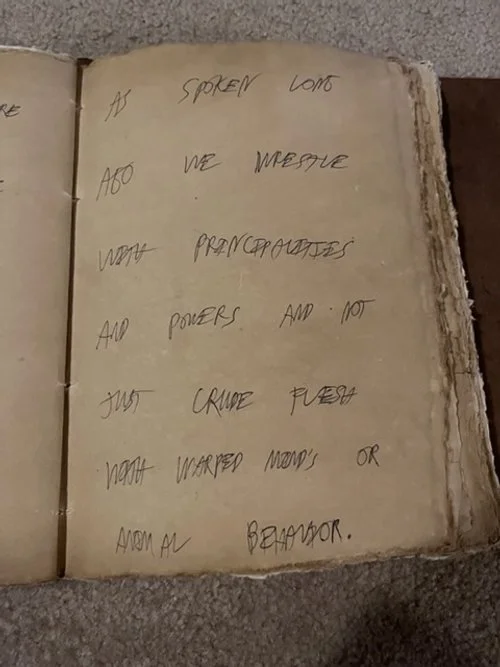 RE
AS SPOKEN LONG
AGO WE WRESTLE
WITH PRINCIPALITIES
AND POWERS AND NOT
JUST CRUDE FLESH
WITH WARPED MIND'S OR
ANIMAL BEHAVIOR.